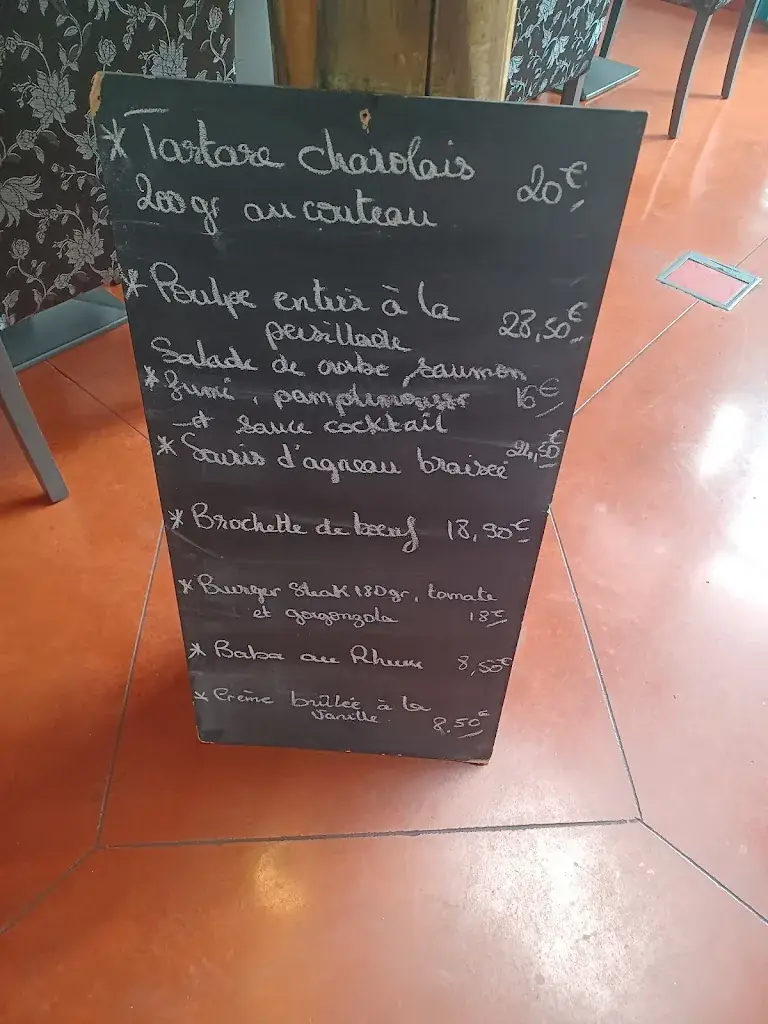 * Tartare charolais
200gr au couteau 20€
* Poulpe entier à la
persillade 28,50€
Salade de crabe, saumon
* fumé, pamplemousse 16€
et sauce cocktail
* Souris d'agneau braisée 24,50€
* Brochette de boeuf 18,90€
* Burger Steak 180gr, tomate
et gorgonzola 18€
* Baba au Rhum 8,50€
* Crème brûlée à la
vanille 8.50€